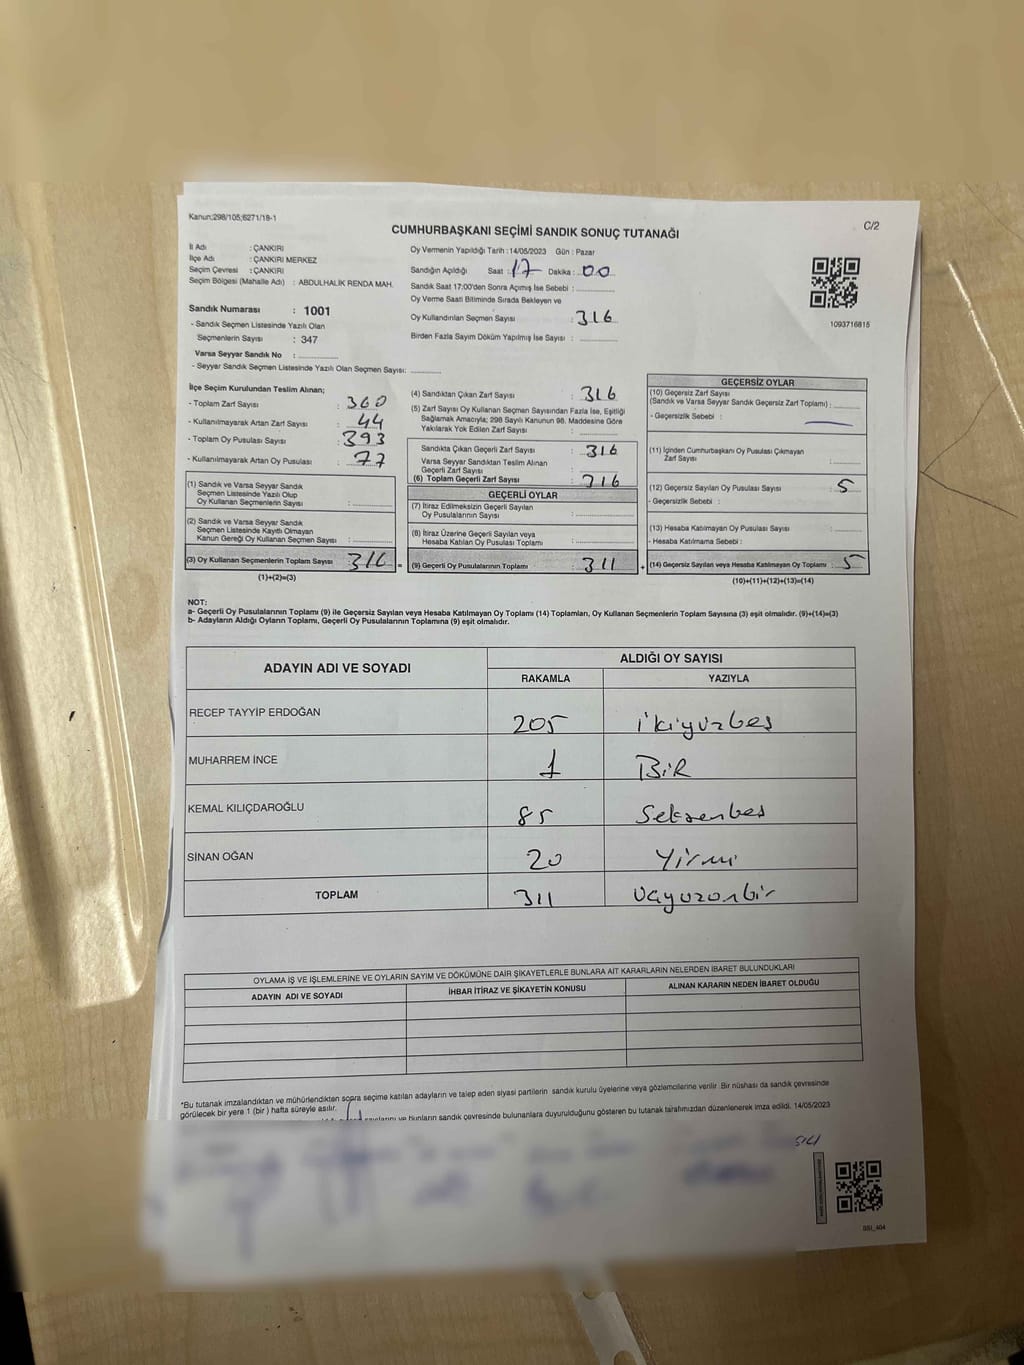 Kanun;298/105;6271/18-1
C/2
CUMHURBAŞKANI SEÇİMİ SANDIK SONUÇ TUTANAĞI
İl Adı : ÇANKIRI
İlçe Adı : ÇANKIRI MERKEZ
Seçim Çevresi : ÇANKIRI
Seçim Bölgesi (Mahalle Adı) : ABDULHALİK RENDA MAH.
Sandık Numarası : 1001
- Sandık Seçmen Listesinde Yazılı Olan
Seçmenlerin Sayısı : 347
Varsa Seyyar Sandık No :
- Seyyar Sandık Seçmen Listesinde Yazılı Olan Seçmen Sayısı:
Oy Vermenin Yapıldığı Tarih : 14/05/2023 Gün : Pazar
Sandığın Açıldığı Saat : 17 Dakika : 00
Sandık Saat 17:00'den Sonra Açımış İse Sebebi :
Oy Verme Saati Bitiminde Sırada Bekleyen ve
Oy Kullandırılan Seçmen Sayısı : 316
Birden Fazla Sayım Döküm Yapılmış İse Sayısı :
1093716815
İlçe Seçim Kurulundan Teslim Alınan;
- Toplam Zarf Sayısı : 360
- Kullanılmayarak Artan Zarf Sayısı : 44
- Toplam Oy Pusulası Sayısı : 393
- Kullanılmayarak Artan Oy Pusulası : 77
(1) Sandık ve Varsa Seyyar Sandık
Seçmen Listesinde Yazılı Olup
Oy Kullanan Seçmenlerin Sayısı :
(2) Sandık ve Varsa Seyyar Sandık
Seçmen Listesinde Kayıtlı Olmayan
Kanun Gereği Oy Kullanan Seçmen Sayısı :
(3) Oy Kullanan Seçmenlerin Toplam Sayısı : 316 =
(1)+(2)=(3)
(4) Sandıktan Çıkan Zarf Sayısı : 316
(5) Zarf Sayısı Oy Kullanan Seçmen Sayısından Fazla İse, Eşitliği
Sağlamak Amacıyla; 298 Sayılı Kanunun 98. Maddesine Göre
Yakılarak Yok Edilen Zarf Sayısı :
Sandıkta Çıkan Geçerli Zarf Sayısı : 316
Varsa Seyyar Sandıktan Teslim Alınan
Geçerli Zarf Sayısı :
(6) Toplam Geçerli Zarf Sayısı : 316
GEÇERLİ OYLAR
(7) İtiraz Edilmeksizin Geçerli Sayılan
Oy Pusulalarının Sayısı :
(8) İtiraz Üzerine Geçerli Sayılan veya
Hesaba Katılan Oy Pusulası Toplamı :
(9) Geçerli Oy Pusulalarının Toplamı : 311 +
GEÇERSİZ OYLAR
(10) Geçersiz Zarf Sayısı
(Sandık ve Varsa Seyyar Sandık Geçersiz Zarf Toplamı) :
- Geçersizlik Sebebi :
(11) İçinden Cumhurbaşkanı Oy Pusulası Çıkmayan
Zarf Sayısı :
(12) Geçersiz Sayılan Oy Pusulası Sayısı : 5
- Geçersizlik Sebebi :
(13) Hesaba Katılmayan Oy Pusulası Sayısı :
- Hesaba Katılmama Sebebi :
(14) Geçersiz Sayılan veya Hesaba Katılmayan Oy Toplamı : 5
(10)+(11)+(12)+(13)=(14)
NOT:
a- Geçerli Oy Pusulalarının Toplamı (9) ile Geçersiz Sayılan veya Hesaba Katılmayan Oy Toplamı (14) Toplamları, Oy Kullanan Seçmenlerin Toplam Sayısına (3) eşit olmalıdır. (9)+(14)=(3)
b- Adayların Aldığı Oyların Toplamı, Geçerli Oy Pusulalarının Toplamına (9) eşit olmalıdır.
ADAYIN ADI VE SOYADI ALDIĞI OY SAYISI
RAKAMLA YAZIYLA
RECEP TAYYİP ERDOĞAN 205 ikiyüzbeş
MUHARREM İNCE 1 BİR
KEMAL KILIÇDAROĞLU 85 Seksenbeş
SİNAN OĞAN 20 Yirmi
TOPLAM 311 üçyüzonbir
OYLAMA İŞ VE İŞLEMLERİNE VE OYLARIN SAYIM VE DÖKÜMÜNE DAİR ŞİKAYETLERLE BUNLARA AİT KARARLARIN NELERDEN İBARET BULUNDUKLARI
ADAYIN ADI VE SOYADI İHBAR İTİRAZ VE ŞİKAYETİN KONUSU ALINAN KARARIN NEDEN İBARET OLDUĞU
*Bu tutanak imzalandıktan ve mühürlendikten sonra seçime katılan adayların ve talep eden siyasi partilerin sandık kurulu üyelerine veya gözlemcilerine verilir. Bir nüshası da sandık çevresinde
görülecek bir yere 1 (bir) hafta süreyle asılır.
ve bunların sandık çevresinde bulunanlara duyurulduğunu gösteren bu tutanak tarafımızdan düzenlenerek imza edildi. 14/05/2023